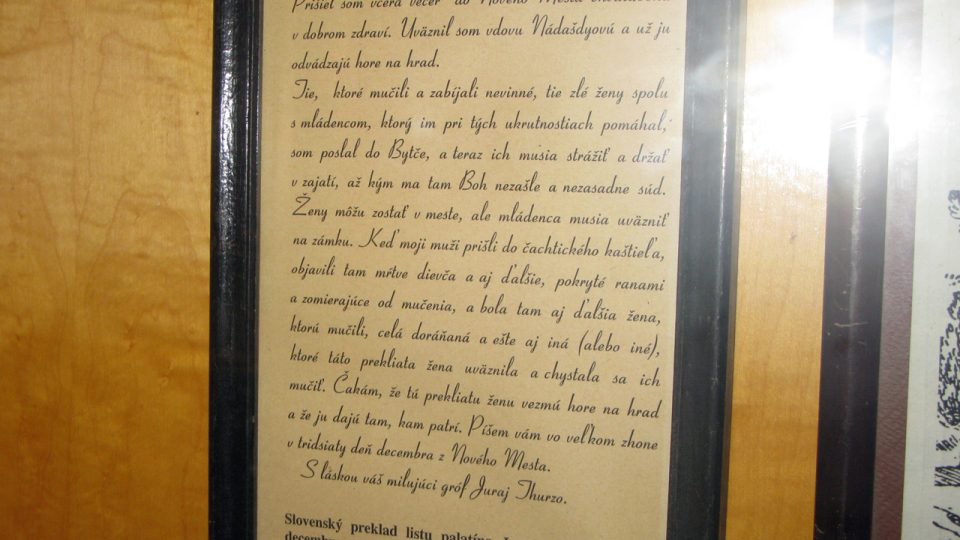 Prišiel som včera večer do Nového Mesta
v dobrom zdraví. Uväznil som vdovu Nádašdyovú a už ju
odvádzajú hore na hrad.
Tie, ktoré mučili a zabíjali nevinné, tie zlé ženy spolu
s mládencom, ktorý im pri tých ukrutnostiach pomáhal,
som poslal do Bytče, a teraz ich musia strážiť a držať
v zajatí, až kým ma tam Boh nezašle a nezasadne súd.
Ženy môžu zostať v meste, ale mládenca musia uväzniť
na zámku. Keď moji muži prišli do čachtického kaštieľa,
objavili tam mŕtve dievča a aj ďalšie, pokryté ranami
a zomierajúce od mučenia, a bola tam aj ďalšia žena,
ktorú mučili, celá doráňaná a ešte aj iná (alebo iné),
ktoré táto prekliata žena uväznila a chystala sa ich
mučiť. Čakám, že tú prekliatu ženu vezmú hore na hrad
a že ju dajú tam, kam patrí. Píšem vám vo veľkom zhone
v tridsiaty deň decembra z Nového Mesta.
S láskou váš milujúci gróf Juraj Thurzo.
Slovenský preklad listu palatína